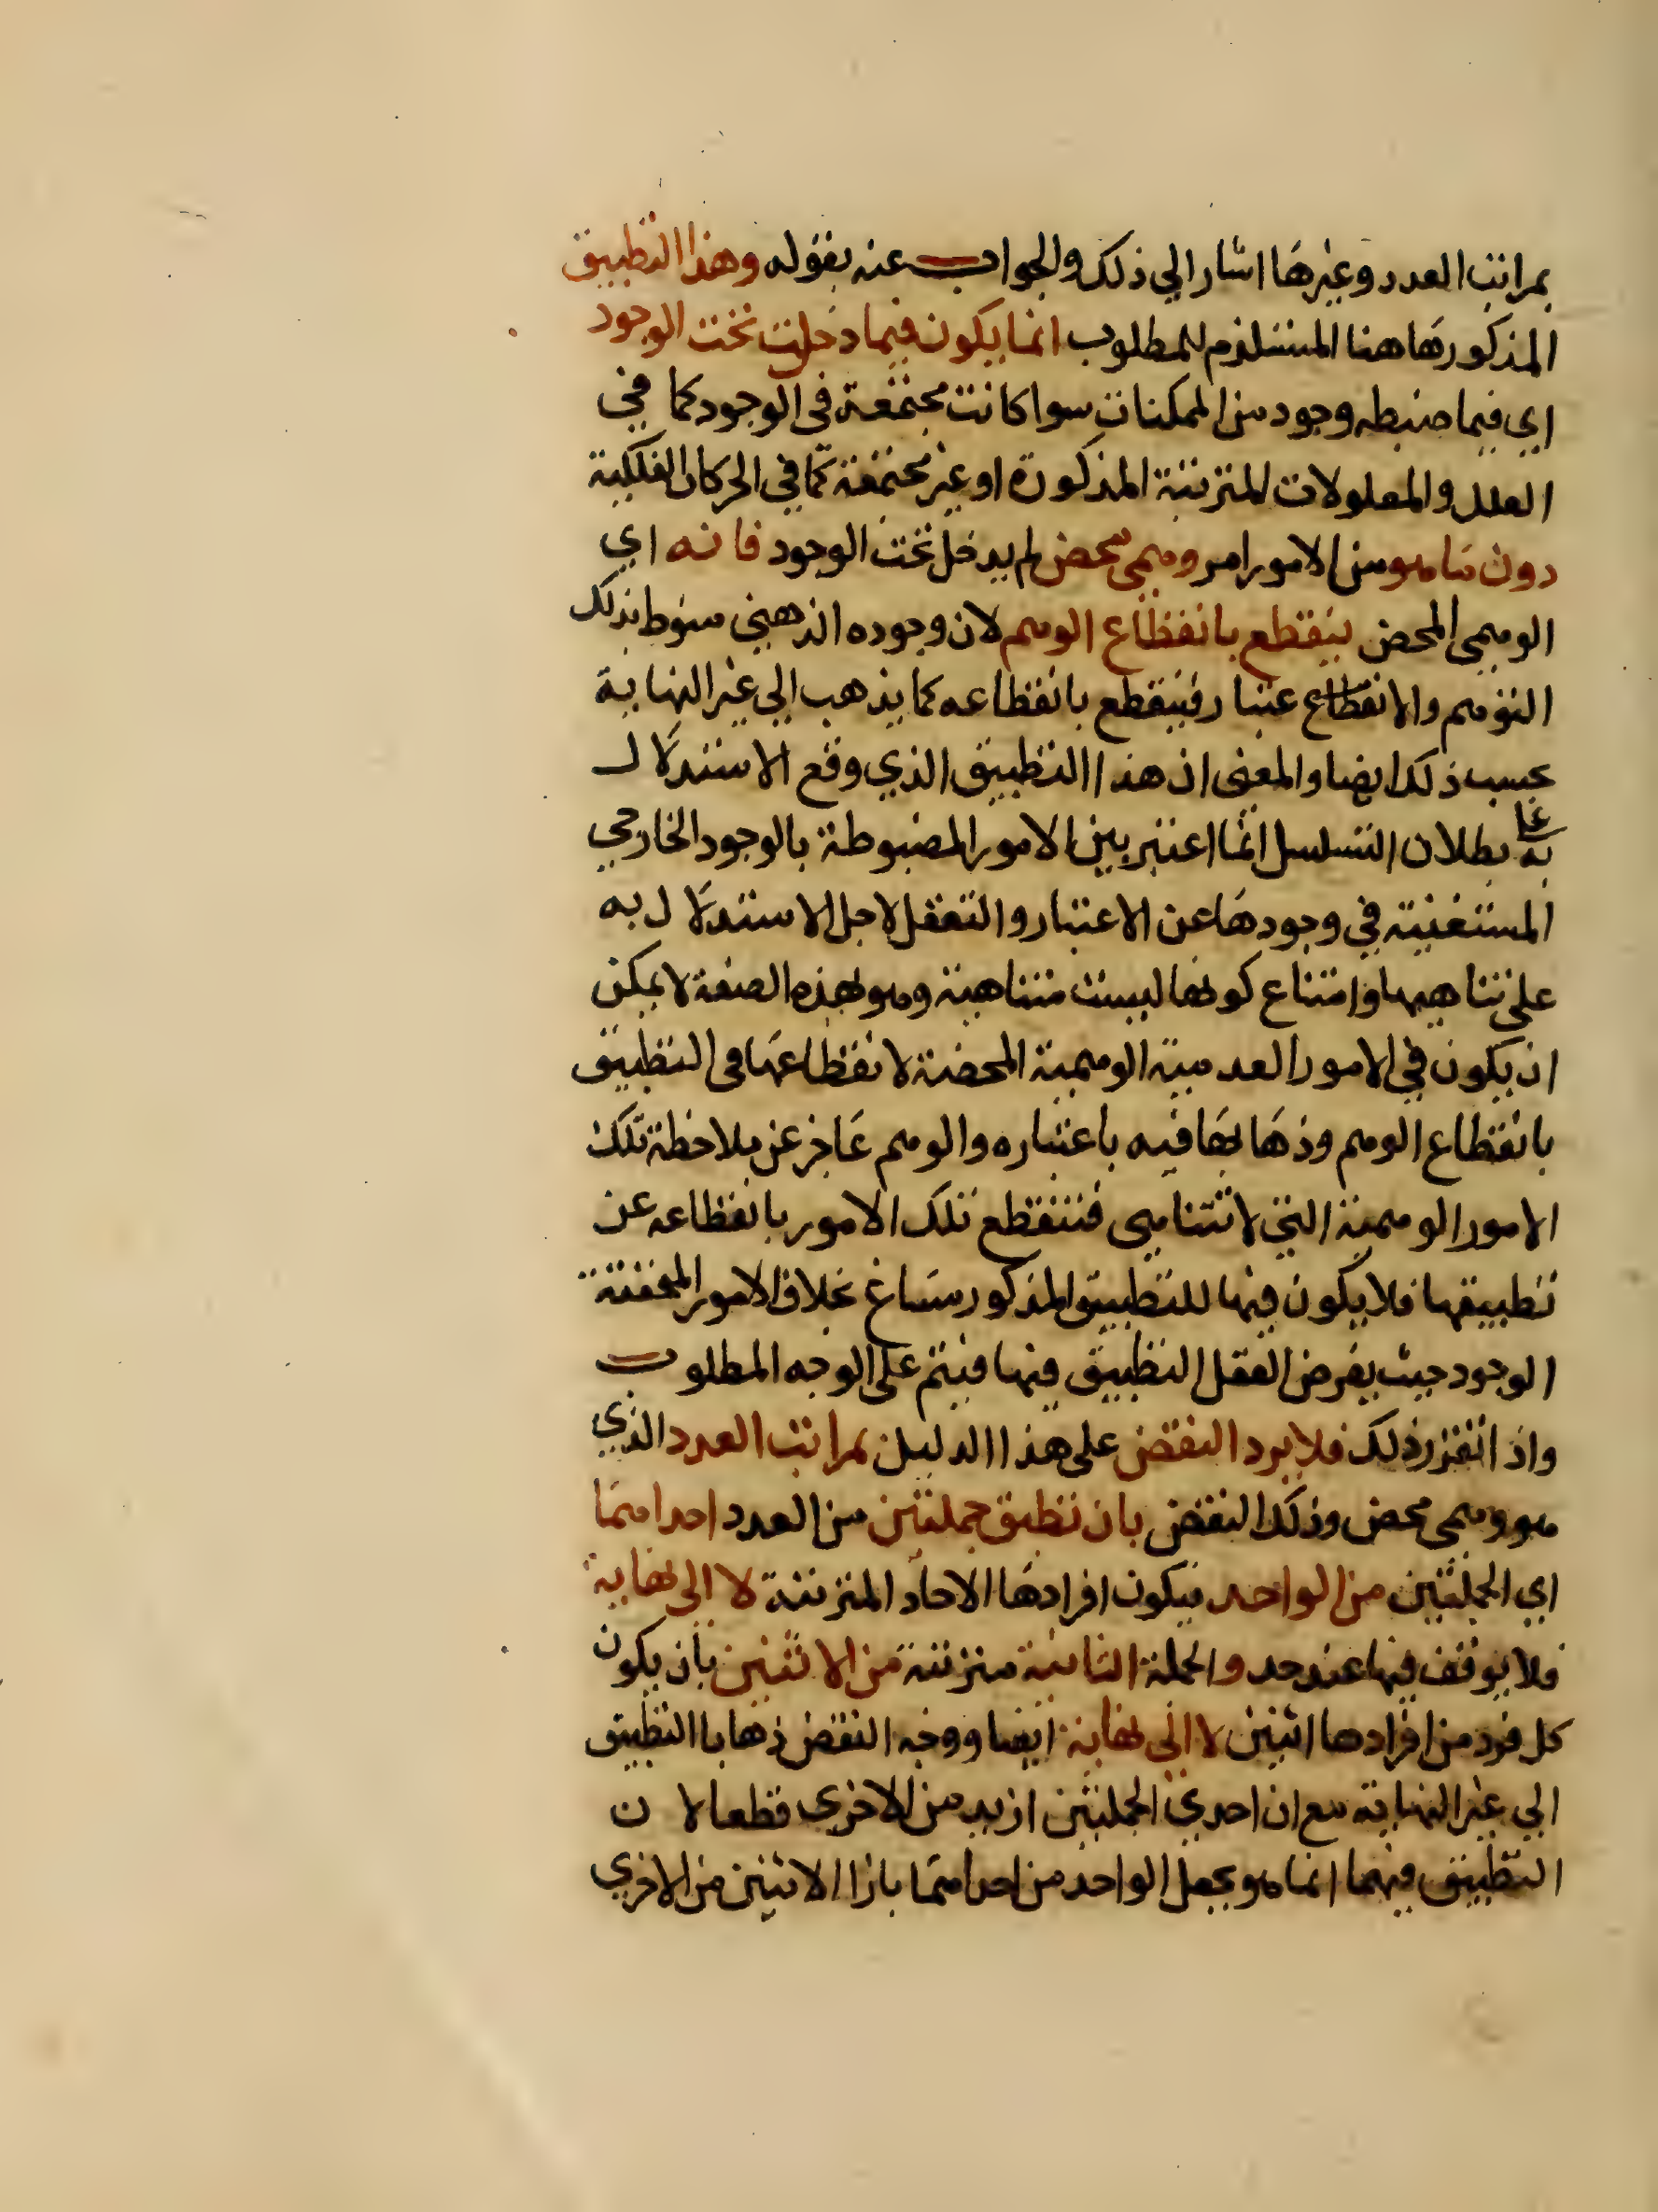 بمراتب العدد وغيرها اشار الي ذلك والجواب عنه بقوله وهذا التطبيق
المذكور هاهنا المستلزم للمطلوب انما يكون فيما دخلت تحت الوجود
اي فيما ضبطه وجود من الممكنات سوا كانت مجتمعة في الوجود كما في
العلل والمعلولات المترتبة المذكورة او غير مجتمعة كما في الحركات الفلكية
دون ما هو من الامور امر وهمي محض لم يدخل تحت الوجود فانه اي
الوهمي المحض ينقطع بانقطاع الوهم لان وجوده الذهني منوط بذلك
التوهم والانقطاع فينقطع بانقطاعه كما يذهب الي غير النهاية
بحسب ذلك ايضا والمعني ان هذا التطبيق الذي وقع الاستدلال
به علي بطلان التسلسل انما اعتبر بين الامور المضبوطة بالوجود الخارجي
المستغنية في وجودها عن الاعتبار والتعقل لاجل الاستدلال به
علي تناهيها وامتناع كونها ليست متناهية وهو بهذه الصفة لا يمكن
ان يكون في الامور العدمية الوهمية المحضة لانقطاعها في التطبيق
بانقطاع الوهم وذهابها فيه باعتباره والوهم عاجز عن ملاحظة تلك
الامور الوهمية التي لا تتناهي فتنقطع تلك الامور بانقطاعه عن
تطبيقها فلا يكون فيها للتطبيق المذكور مساغ بخلاف الامور المحققة
الوجود حيث يفرض العقل التطبيق فيها فيتم علي الوجه المطلوب
واذ اتقرر ذلك فلا يرد النقض علي هذا الدليل بمراتب العدد الذي
هو وهمي محض وذلك النقض بان تطبق جملتين من العدد احداهما
اي الجملتين من الواحد فيكون افرادها الاحاد المترتبة لا الي نهاية
فلا يوقف فيها عند حد والجملة الثانية مترتبة من الاثنين بان يكون
كل فرد من افرادها اثنين لا الي نهاية ايضا ووجه النقض ذهاب التطبيق
الي غير النهاية مع ان احدي الجملتين ازيد من الاخري قطعا لان
التطبيق فيهما انما هو بجعل الواحد من احداهما بازا الاثنين من الاخري